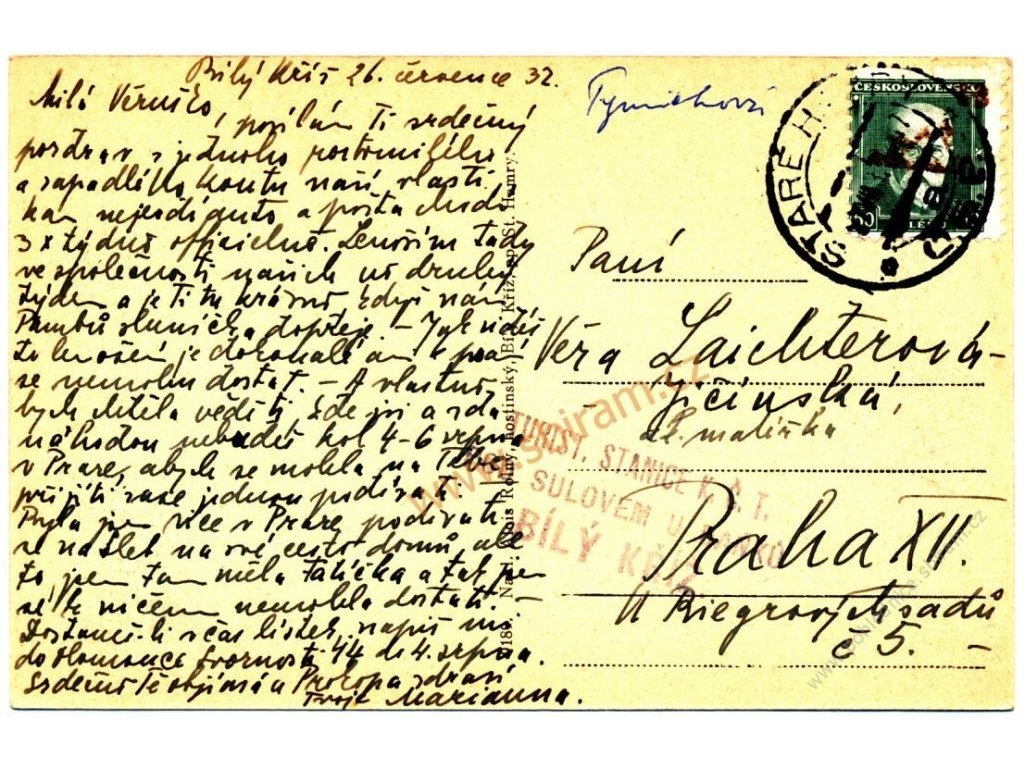 Bílý Kříž 26. července 32.
Milá Věruško, posílám Ti srdečný
pozdrav s jednoho roztomilého
a zapadlého koutu naší vlasti
kam nejezdí auto a pošta chodí
3x týdně officielně. Lenoším tady
ve společnosti našich už druhý
týden a je ti tu krásně když nám
Pámbů sluníčka dopřeje. – Jak vidíš
to lenošení je dokonalé ani k psaní
se nemohu dostat. – A vlastně
bych chtěla věděti, kde jsi a zda
náhodou nebudeš kol 4–6 srpna
v Praze, abych se mohla na Tebe
přijíti zase jednou podívati.
Byla jsem sice v Praze podívati
se našlet na své cestě domů, ale
to jsem tam měla tatíčka a tak jsem
se k ničem nemohla dostati. –
Dostaneš-li včas lístek, napiš mi
do Olomouce Svornosti 44 do 4. srpna.
Srdečně Tě objímá a Prokopa zdraví
Tvoje Marianna.
Tymichová
ČESKOSLOVENSKO
STARÉ HAMRY
50
Paní
Věra Laichterová-
Jičínská,
ak. malířka
Praha XII
U Riegrových sadů
č 5. –
TURIST. STANICE K. Č. T.
SULOVEM U
BÍLÝ KŘÍŽ
Alois Rolný, hostinský, Bílý Kříž, p. St. Hamry.
www.spiram.cz